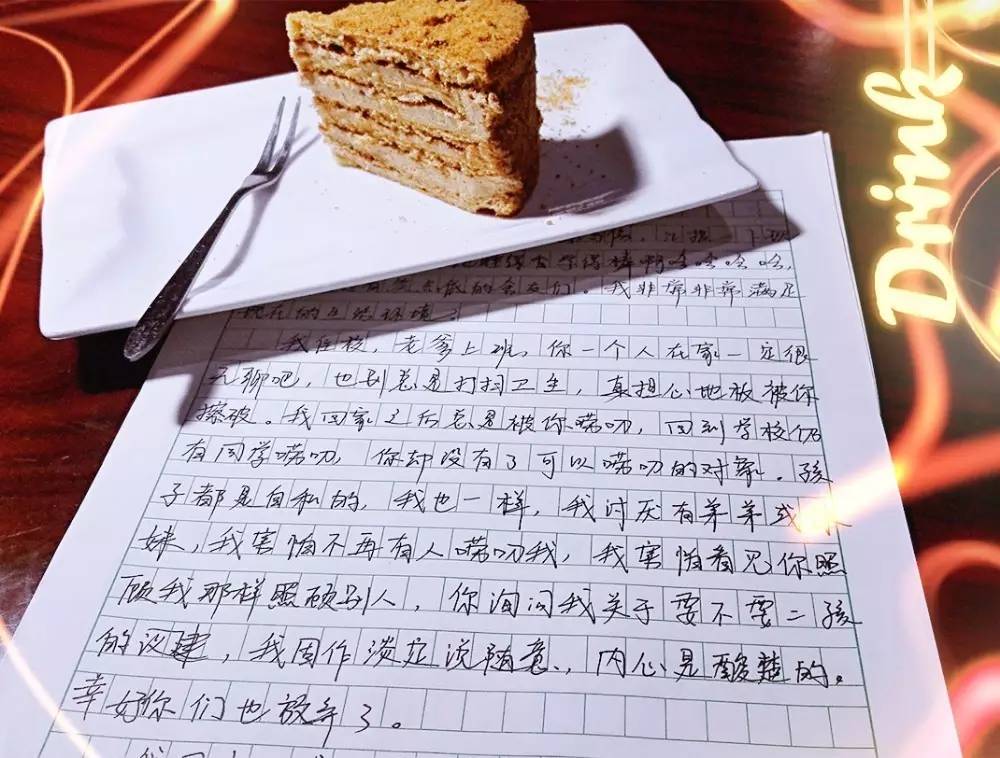 得去你得棒啊哈哈哈哈,
的舍友们。我非常非常满足
现在的互然环境了
我住校,老爹上班,你一个人在家一定很
无聊吧,也别总是打扫卫生,真担心地放被你
擦破。我回家之后总是被你唠叨,回到学校仍
有同学唠叨,你却没有了可以唠叨的对象。孩
子都是自私的,我也一样,我讨厌有弟弟或
妹,我害怕不再有人唠叨我,我害怕看见你照
顾我那样照顾别人,你询问我关于要不要二孩
的议建,我固作淡定说随意,内心是酸楚的。
幸好你们也放弃了。
Drink